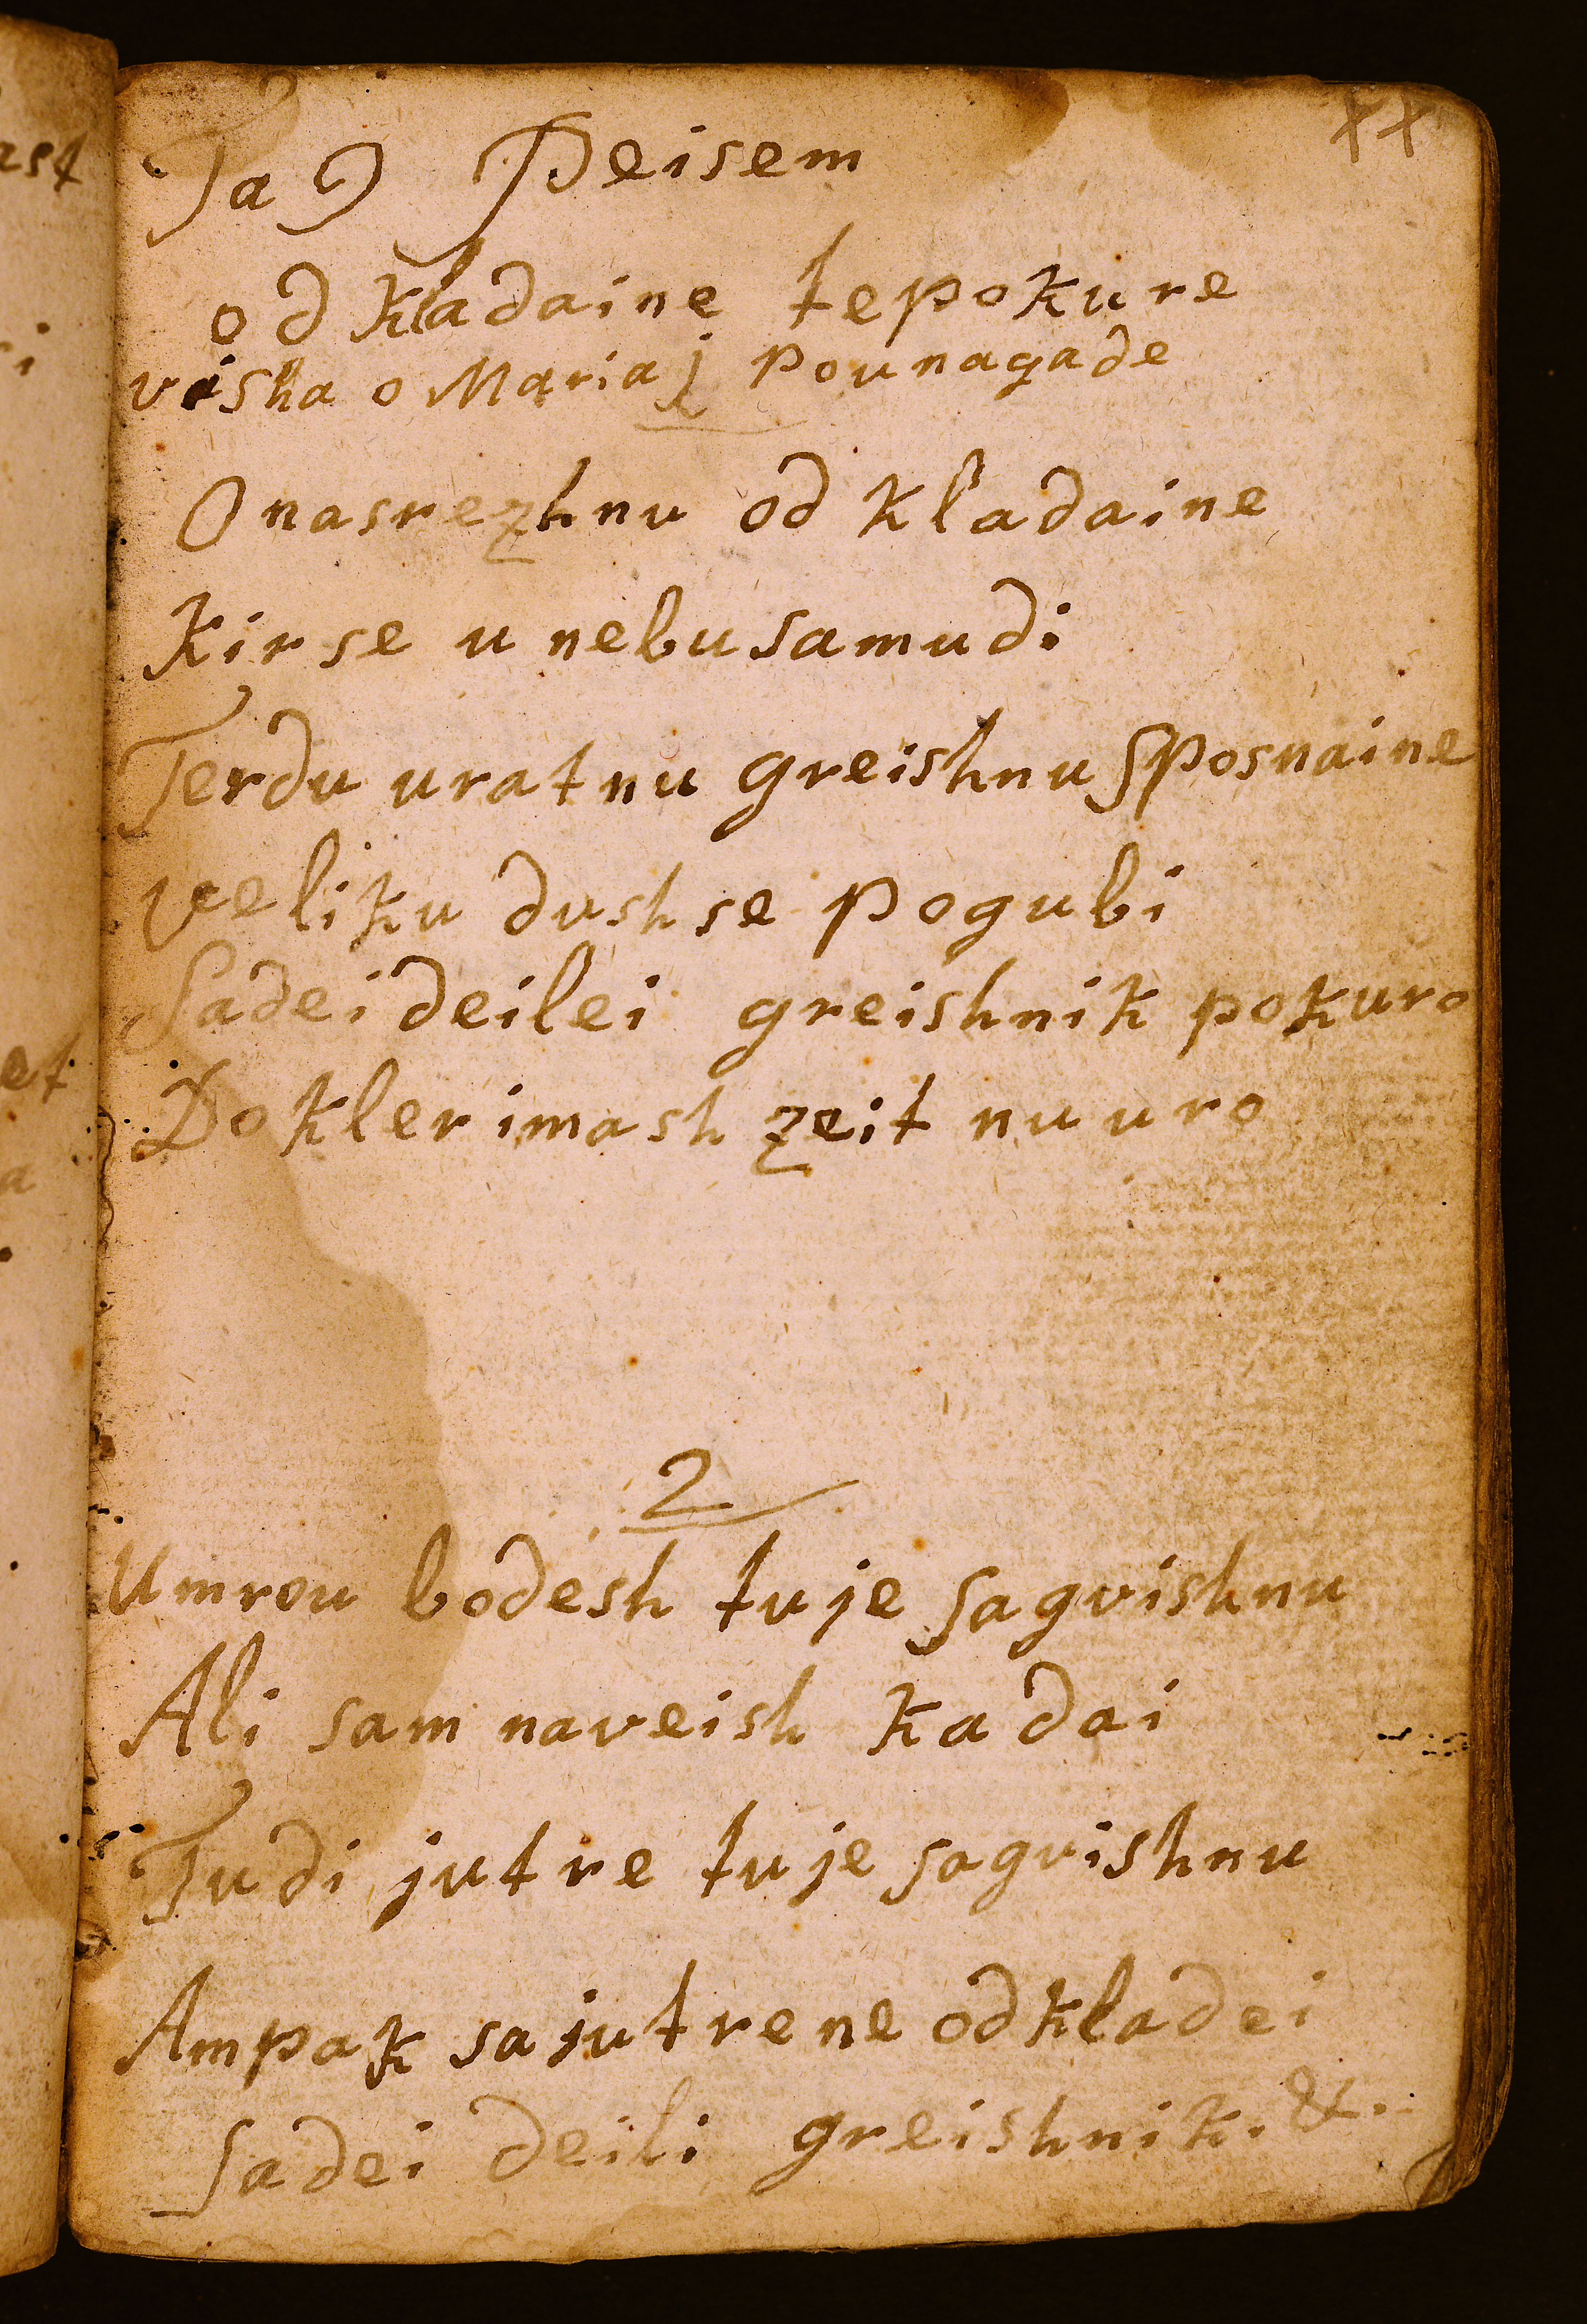 Ta 9 Peisem
od kladaine tepokure
viska o Mariaj pounagade
O nasrezhnu od kladaine
Kir se u nebu samudi
Terdu uratnu greishnu sposnaine
veliku dush se pogubi
Sadei deilei greishnik pokuro
Dokler imash zeit nu uro
2
Umrou bodesh tu je sagvishnu
Ali sam naveish kadai
Tudi jutre tu je sagvishnu
Ampak sa jutre ne odkladei
Sadei deili greishnik. &.